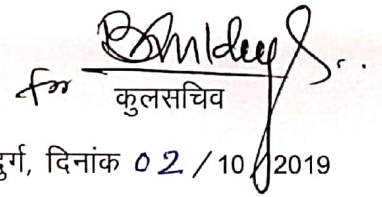 for
कुलसचिव
दुर्ग, दिनांक 02 / 10 / 2019